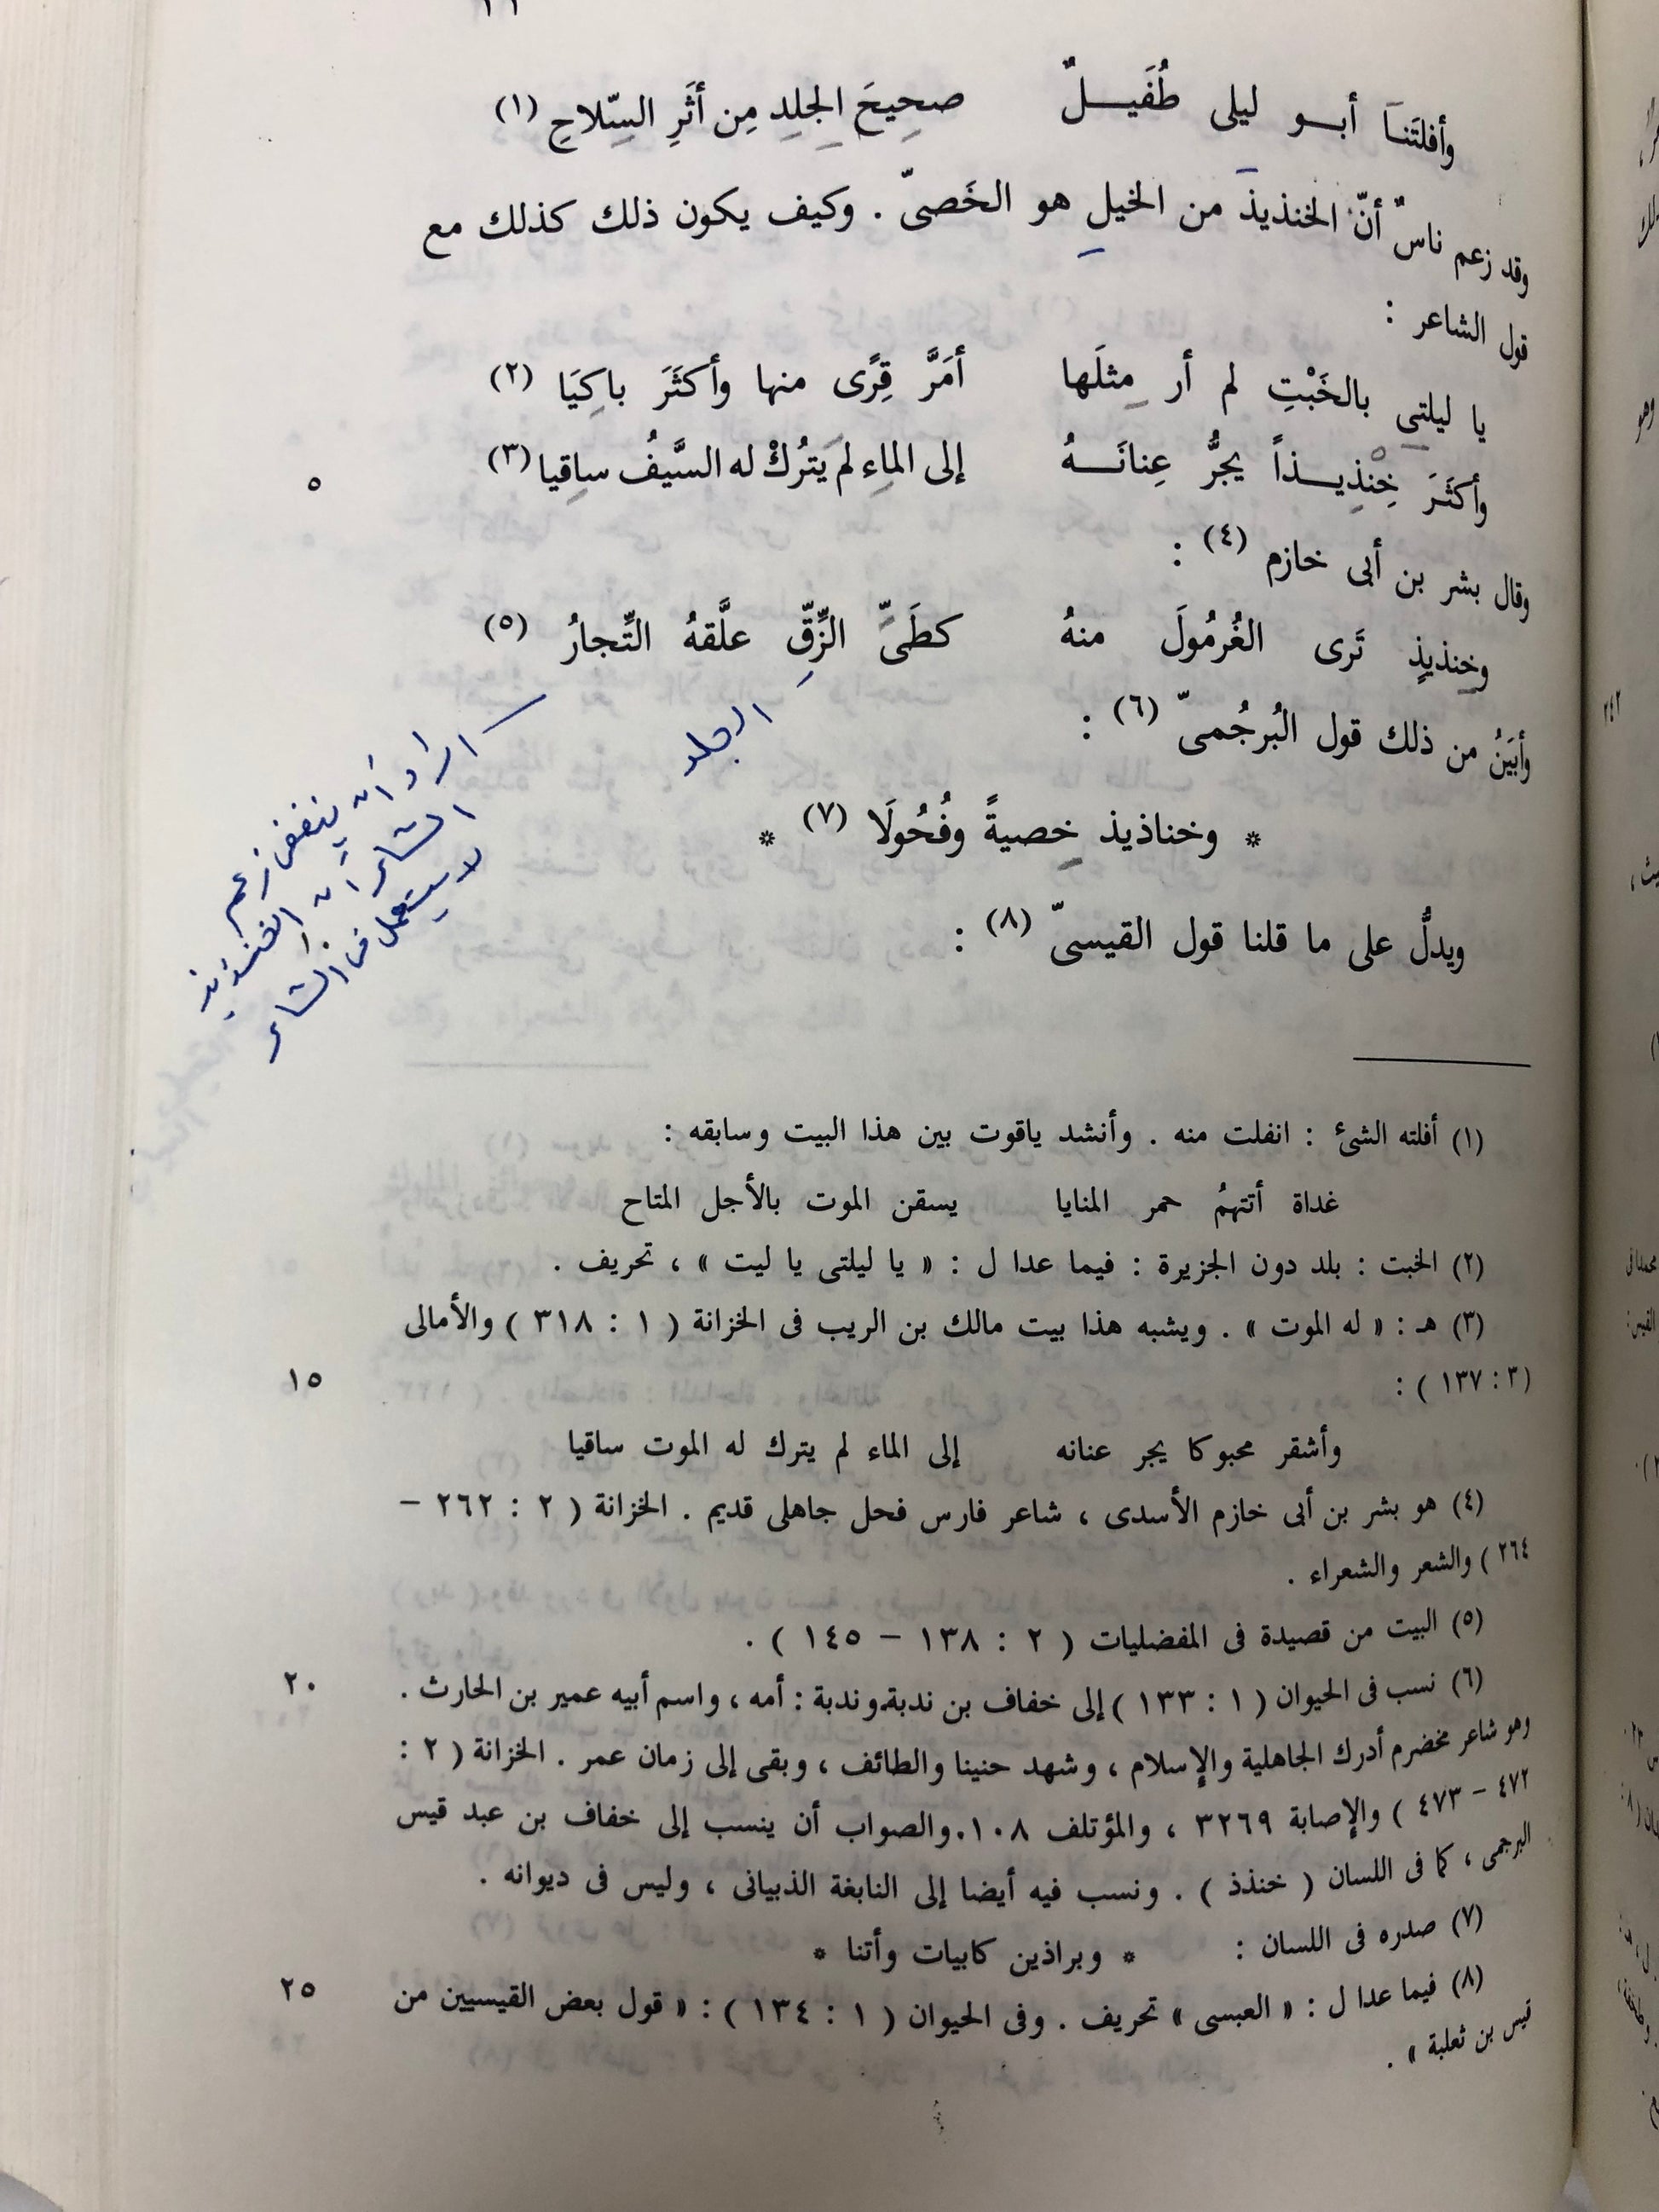 وأفلتَنا أبــو ليلى طُفَيــلٌ صحِيحَ الجِلدِ مِن أثَرِ السِّلاحِ (١)
وقد زعم ناسٌ أنّ الخنذيذ من الخيل هو الخَصىّ . وكيف يكون ذلك كذلك مع
قول الشاعر :
يا ليلتى بالخَبْتِ لم أر مِثلَها أمَرَّ قِرًى منها وأكثَرَ باكِيَا (٢)
وأكثَرَ خِنْذِيــذاً يجرُّ عِنانَــهُ إلى الماءِ لم يَترُكْ له السَّيفُ ساقِيا (٣)
٥
وقال بشر بن أبى خازم (٤) :
وخِنذيذٍ تَرى الغُرمُولَ منهُ كطَىِّ الزِّقِّ علَّقهُ التِّجارُ (٥)
الجلد
وأبيَنُ من ذلك قول البُرجُمىّ (٦) :
* وخناذيذ خِصيةً وفُحُولَا (٧) *
ويدلُّ على ما قلنا قول القيسىّ (٨) :
اراد أن ينقض زعم
الشاعر أن الخنذيذ
لا يستعمل فى الشاعر
١٠
(١) أفلته الشئ : انفلت منه . وأنشد ياقوت بين هذا البيت وسابقه :
غداة أتتهمُ حمر المنايا يسقن الموت بالأجل المتاح
(٢) الخبت : بلد دون الجزيرة : فيما عدا ل : « يا ليلتى يا ليت » ، تحريف .
(٣) هـ : « له الموت » . ويشبه هذا بيت مالك بن الريب فى الخزانة ( ١ : ٣١٨ ) والأمالى
( ٣ : ١٣٧ ) :
١٥
وأشقر محبوكا يجر عنانه إلى الماء لم يترك له الموت ساقيا
(٤) هو بشر بن أبى خازم الأسدى ، شاعر فارس فحل جاهلى قديم . الخزانة ( ٢ : ٢٦٢ –
٢٦٤ ) والشعر والشعراء .
(٥) البيت من قصيدة فى المفضليات ( ٢ : ١٣٨ – ١٤٥ ) .
(٦) نسب فى الحيوان ( ١ : ١٣٣ ) إلى خفاف بن ندبة. وندبة : أمه ، واسم أبيه عمير بن الحارث .
٢٠
وهو شاعر مخضرم أدرك الجاهلية والإسلام ، وشهد حنينا والطائف ، وبقى إلى زمان عمر . الخزانة ( ٢ :
٤٧٢ – ٤٧٣ ) والإصابة ٣٢٦٩ ، والمؤتلف ١٠٨. والصواب أن ينسب إلى خفاف بن عبد قيس
البرجمى ، كما فى اللسان ( خنذذ ) . ونسب فيه أيضا إلى النابغة الذبيانى ، وليس فى ديوانه .
(٧) صدره فى اللسان : * وبراذين كابيات وأتنا *
(٨) فيما عدا ل : « العبسى » تحريف . وفى الحيوان ( ١ : ١٣٤ ) : « قول بعض القيسيين من
٢٥
قيس بن ثعلبة » .